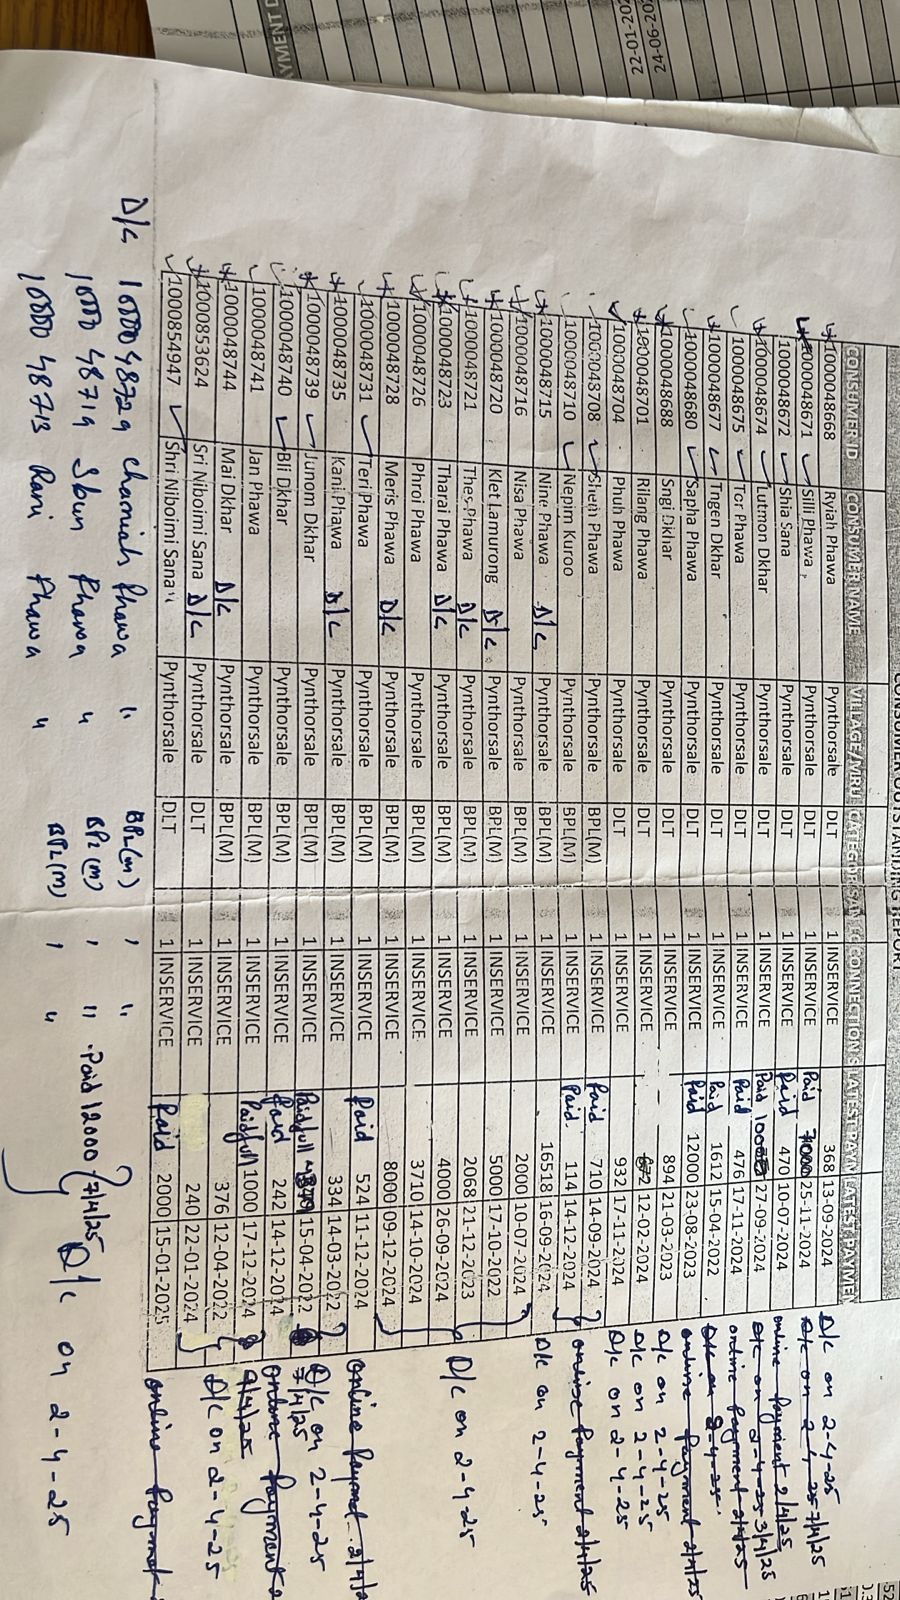 22-01-202
24-06-20
CONSUMER OUTSTANDING REPORT
CONSUMER ID CONSUMER NAME VILLAGE/MRU CATEGO CONNECTION S LATEST PAYM LATEST PAYMEN
1000048668 Ryiah Phawa Pynthorsale DLT 1 INSERVICE 368 13-09-2024 D/c on 2-4-25
1000048671 Silli Phawa Pynthorsale DLT 1 INSERVICE Paid 25-11-2024 D/c on 2-4-25 7/4/25
1000048672 Shia Sana Pynthorsale DLT 1 INSERVICE Paid 470 10-07-2024 online Payment 2/4/25
1000048674 Lutmon Dkhar Pynthorsale DLT 1 INSERVICE Paid 27-09-2024 D/c on 2-4-25 3/4/25
1000048675 Tor Phawa Pynthorsale DLT 1 INSERVICE Paid 476 17-11-2024 online Payment 2/4/25
1000048677 Tngen Dkhar Pynthorsale DLT 1 INSERVICE Paid 1612 15-04-2022 D/c on 2-4-25
1000048680 Sapha Phawa Pynthorsale DLT 1 INSERVICE Paid 12000 23-08-2023 online Payment 2/4/25
1000048688 Sngi Dkhar Pynthorsale DLT 1 INSERVICE 894 21-03-2023 D/c on 2-4-25
1000048701 Rilang Phawa Pynthorsale DLT 1 INSERVICE 12-02-2024 D/c on 2-4-25
1000048704 Phuh Phawa Pynthorsale DLT 1 INSERVICE 932 17-11-2024 D/c on 2-4-25
1000048708 Sheih Phawa Pynthorsale BPL(M) 1 INSERVICE Paid 710 14-09-2024 online Payment 2/4/25
1000048710 Nepim Kuroo Pynthorsale BPL(M) 1 INSERVICE Paid 114 14-12-2024
1000048715 Nine Phawa D/c Pynthorsale BPL(M) 1 INSERVICE 16518 16-09-2024 D/c on 2-4-25
1000048716 Nisa Phawa Pynthorsale BPL(M) 1 INSERVICE 2000 10-07-2024
1000048720 Klet Lamurong D/c Pynthorsale BPL(M) 1 INSERVICE 5000 17-10-2022
1000048721 Thes Phawa D/c Pynthorsale BPL(M) 1 INSERVICE 2068 21-12-2023 D/c on 2-4-25
1000048723 Tharai Phawa D/c Pynthorsale BPL(M) 1 INSERVICE 4000 26-09-2024
1000048726 Phrol Phawa Pynthorsale BPL(M) 1 INSERVICE 3710 14-10-2024
1000048728 Meris Phawa D/c Pynthorsale BPL(M) 1 INSERVICE 8000 09-12-2024
1000048731 Teri Phawa Pynthorsale BPL(M) 1 INSERVICE Paid 524 11-12-2024 online Payment 2/4/2
1000048735 Kani Phawa D/c Pynthorsale BPL(M) 1 INSERVICE 334 14-03-2022 D/c on 2-4-25
1000048739 Jumom Dkhar Pynthorsale BPL(M) 1 INSERVICE Paid full 15-04-2022 7/4/25
1000048740 Bli Dkhar Pynthorsale BPL(M) 1 INSERVICE Paid 242 14-12-2024 online Payment 2
1000048741 Jan Phawa Pynthorsale BPL(M) 1 INSERVICE Paid full 1000 17-12-2024 9/4/25
1000048744 Mai Dkhar D/c Pynthorsale BPL(M) 1 INSERVICE 376 12-04-2022 D/c on 2-4-25
1000853624 Sri Niboimi Sana D/c Pynthorsale DLT 1 INSERVICE 240 22-01-2024
1000854947 Shri Niboimi Sana Pynthorsale DLT 1 INSERVICE Paid 2000 15-01-2025 online Payment
D/c 1000048729 Phawa " BPL(m) 1 "
1000048719 Phawa " BPL(m) 1 " Paid 12000 7/4/25 D/c on 2-4-25
1000048713 Rani Phawa " BPL(M) 1 "